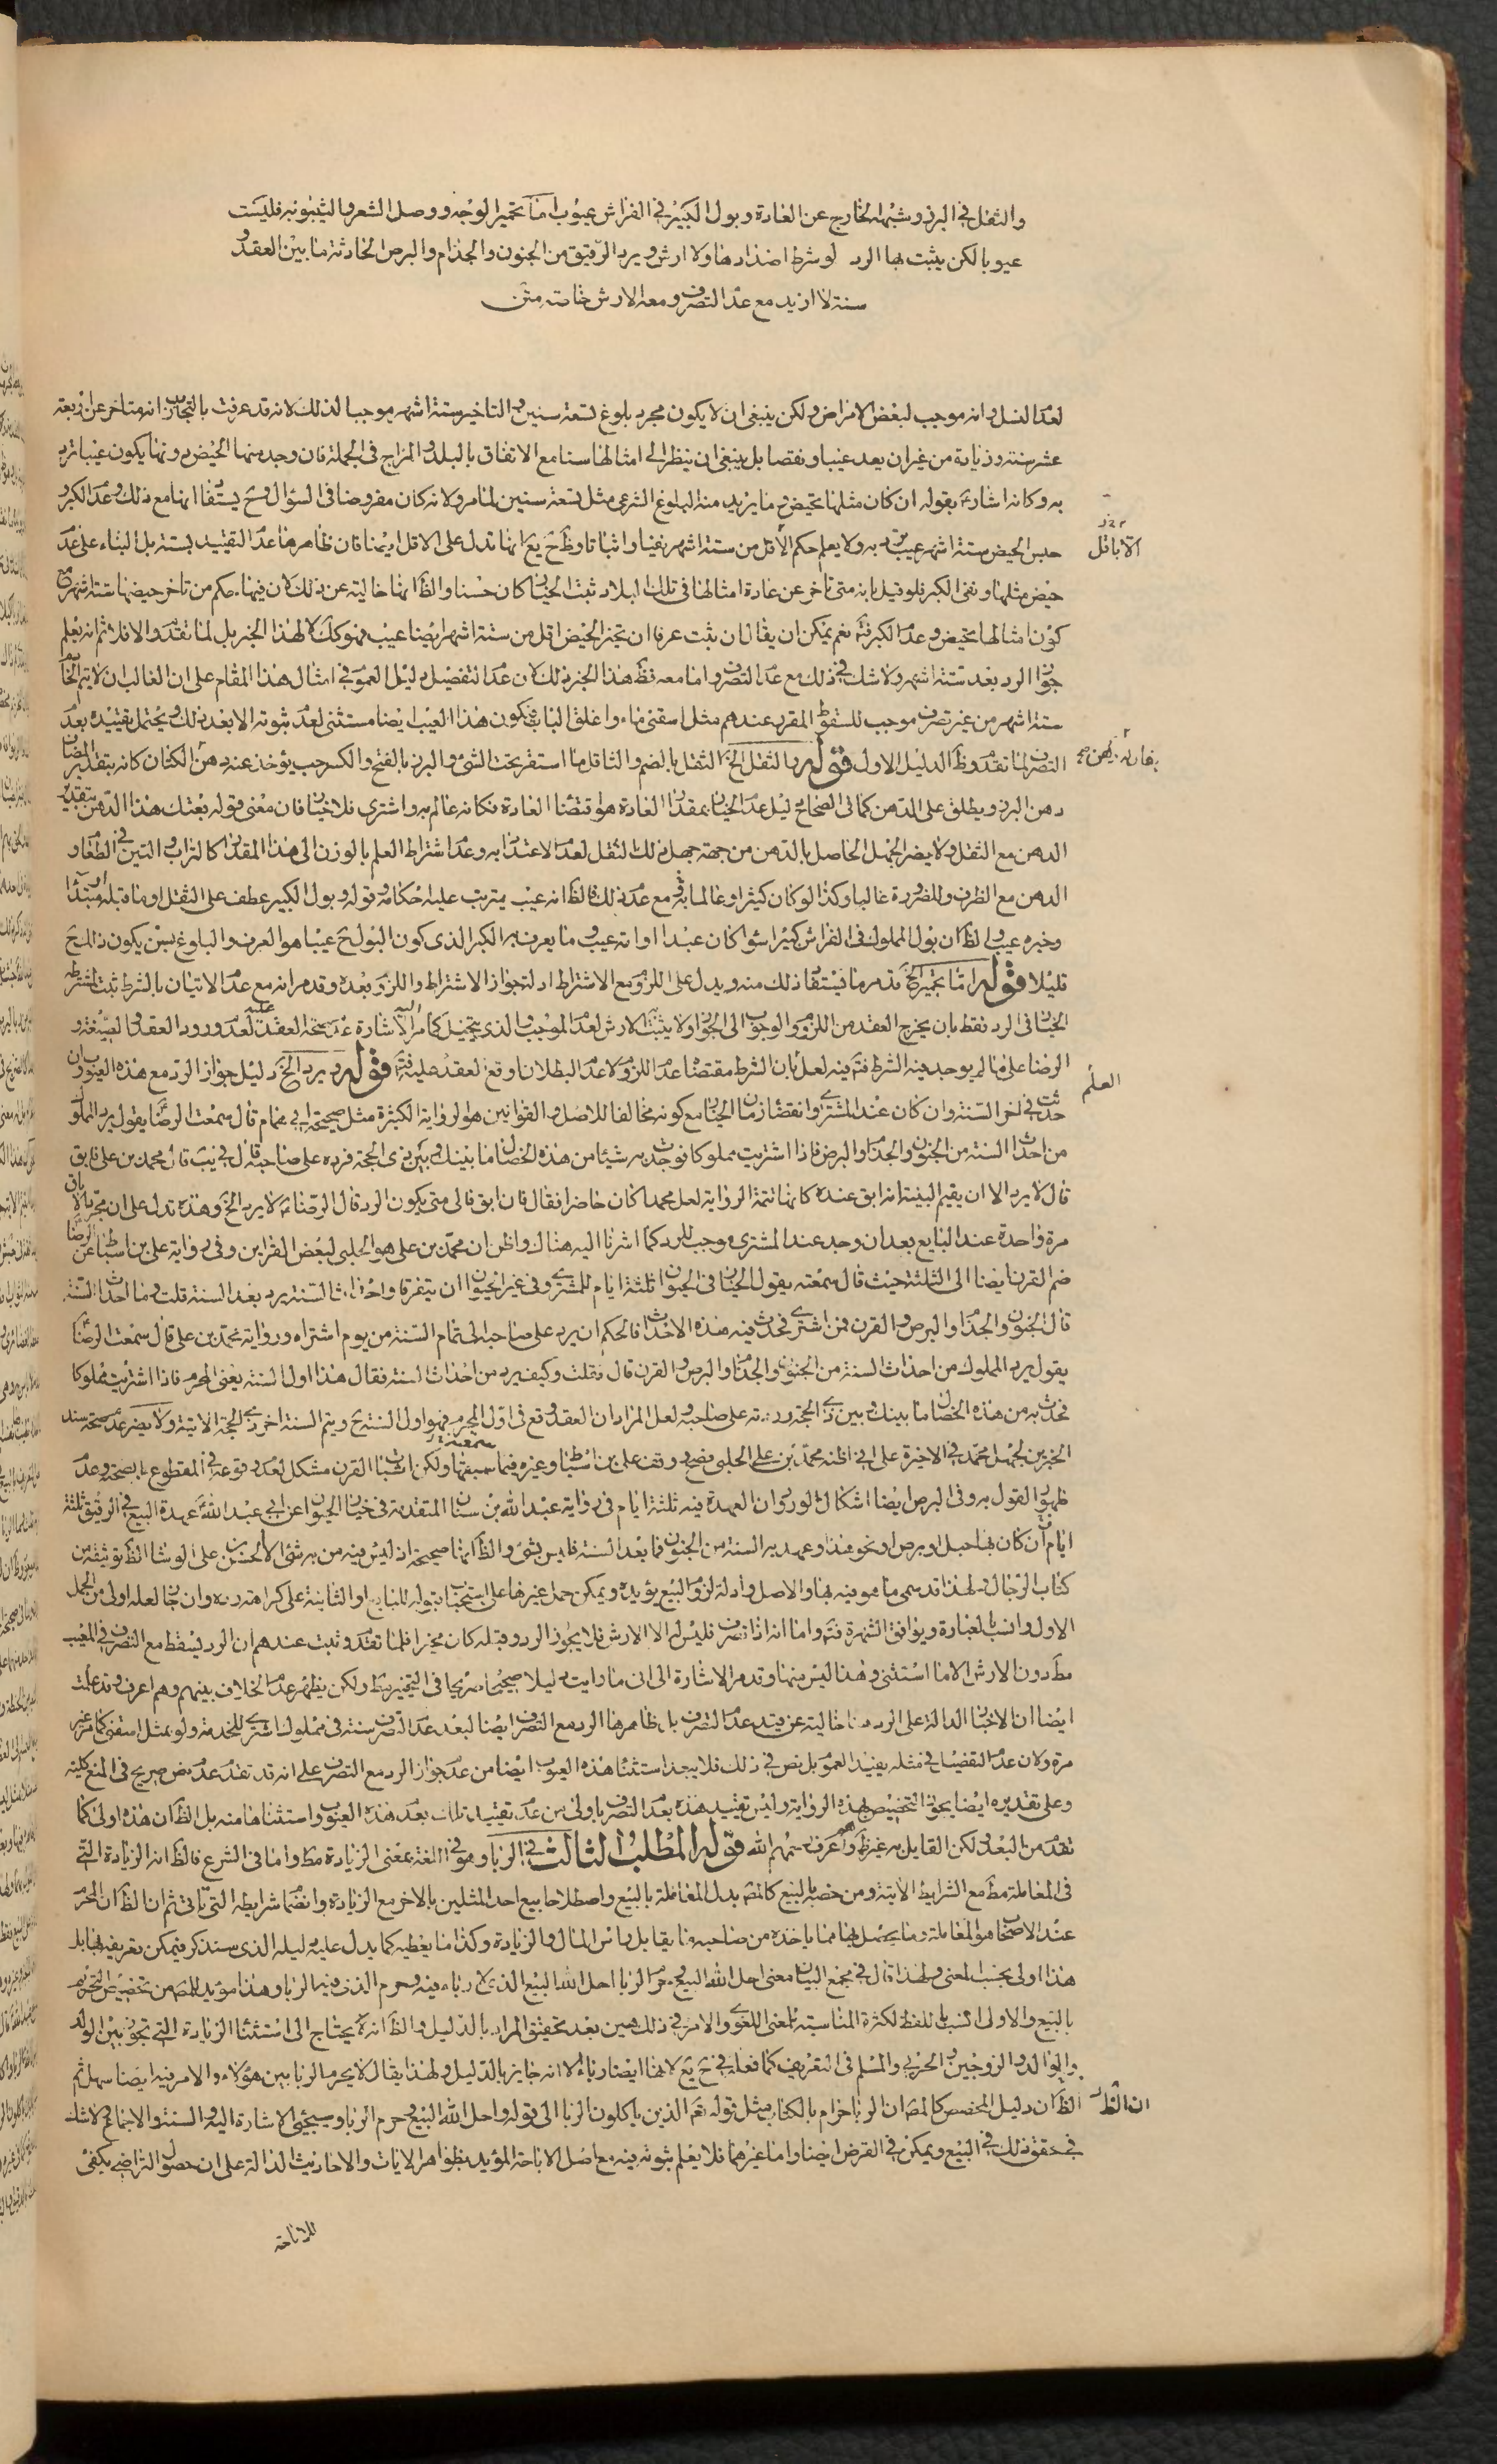 والثفل في البزر وشبهه الخارج عن العادة وبول الكبير في الفراش عيوب اما تحمير الوجه ووصل الشعر والثيبوبة فليست
عيوبا لكن يثبت بها الرد لو شرط اضدادها ولا ارش ويرد الرقيق من الجنون والجذام والبرص الحادثة ما بين العقد و
سنة لا ازيد مع عدم التصرف ومعه الارش خاصة متن
لعدم النسل وانه موجب لبعض الامراض ولكن ينبغي ان لا يكون مجرد بلوغ تسعة سنين والتاخير ستة اشهر موجبا لذلك لانه قد عرفت بالتجارب انه متاخر عن اربعة
عشر سنة وزيادة من غير ان يعد عيبا ونقصا بل ينبغي ان ينظر الى امثالها سنا مع الاتفاق بالبلد والمزاج في الجملة فان وجد منها الحيض دونها يكون عيبا ترد
به وكانه اشارة بقوله ان كان مثلها تحيض وما يريد منه البلوغ الشرعي مثل تسعة سنين لما مر ولانه كان مفروضا في السؤال وح يستفاد انها مع ذلك وعدم الكبر و
حبس الحيض ستة اشهر عيب ترد به ولا يعلم حكم الاقل من ستة اشهر نفيا واثباتا وظ انها تدل على الاقل ايضا فان ظاهرها عدم التقييد بستة بل البناء على عدم
الا باقل
حيض مثلها ونفي الكبر فلو قيل بانه متى تاخر عن عادة امثالها في تلك البلاد ثبت الخيار كان حسنا والظ انها خالية عن ذلك لان فيها حكم من تاخر حيضها ستة اشهر مع
كون امثالها تحيض وعدم الكبر فتم نعم يمكن ان يقال ان ثبت عرفا ان تحيز الحيض اقل من ستة اشهر ايضا عيب فهو كك لا لهذا الخبر بل لما تقدم والا فلا ثم انه يعلم
جواز الرد بعد ستة اشهر ولا شك في ذلك مع عدم التصرف واما معه فظ هذا الخبر ذلك لان عدم التفصيل دليل العموم في امثال هذا المقام على ان الغالب ان لا يتم الخادم
ستة اشهر من غير تصرف موجب للسقوط المقرر عندهم مثل اسقني ماء واغلق الباب فيكون هذا العيب ايضا مستثنى لعدم ثبوته الا بعد ذلك ويحتمل تقييده بعدم
التصرف لما تقدم وظ الدليل الاول قوله والثفل الخ الثفل بالضم والثافل ما استقر تحت الشئ والبزر بالفتح والكسر حب يؤخذ عنه دهن الكتان كانه بتقدير المضاف
دهن البزر ويطلق على الدهن كما في الصحاح دليل عدم الخيار بمقدار العادة هو اقتضاء العادة فكانه عالم به واشترى فلا خيار فان معنى قوله بعتك هذا الدهن بتقدير
الدهن مع الثفل ولا يضر الجهل الحاصل بالدهن من جهة جهل ذلك الثفل لعدم الاعتداد به وعدم اشتراط العلم بالوزن الى هذا المقدار كالتراب والتبن في الطعام و
الدهن مع الظرف وللضرورة غالبا وكذا لو كان كثيرا وعالما به فتم مع عدم ذلك فالظ انه عيب يترتب عليه احكامه وقوله وبول الكبير عطف على الثفل او ما قبله او مبتدا
وخبره عيب والظ ان بول المملوك في الفراش كبيرا سواء كان عبدا او امة عيب وما يعرف به الكبر الذي كون البول ح عيبا هو العرف والبلوغ بسن يكون ذلك ح
قليلا قوله اما تحمير الخ قد مر ما يستفاد ذلك منه ويدل على اللزوم مع الاشتراط ادلة جواز الاشتراط واللزوم بعده وقد مر انه مع عدم الاتيان بالشرط ثبت للمشترط
الخيار في الرد فقط بان يخرج العقد من اللزوم والوجوب الى الجواز ولا يثبت الارش لعدم الموجب والذي يتخيل كما مر اليه الاشارة عدم صحة العقد لعدم ورود العقد والصيغة و
العلم
الرضا على ما لم يوجد فيه الشرط فتم فيه لعل بان الشرط مقتضاه عدم اللزوم لا عدم البطلان وقع العقد عليه فتم قوله ويرد الخ دليل جواز الرد مع هذه العيوب ان
حدثت في اخر السنة وان كان عند المشتري وانقضاء زمان الخيار مع كونه مخالفا للاصل والقوانين هو الرواية الكثيرة مثل صحيحة ابي همام قال سمعت الرضا يقول يرد المملوك
من احداث السنة من الجنون والجذام والبرص فاذا اشتريت مملوكا فوجدت به شيئا من هذه الخصال ما بينك وبين ذي الحجة فرده على صاحبه قال محمد بن علي فابق
قال لا يرد الا ان يقيم البينة انه ابق عنده كانها تتمة الرواية لعل محمدا كان حاضرا فقال فان ابق فالى متى يكون الرد قال الرضا لا يرد الخ وهذه تدل على ان مجرد الاباق
مرة واحدة عند البايع بعد ان وجد عند المشتري موجب للرد كما اشرنا اليه هناك واظن ان محمد بن علي هو الحلبي لبعض القراين وفي رواية علي بن اسباط عن الرضا
ضم القرن ايضا الى الثلثة حيث قال سمعته يقول الخيار في الحيوان ثلثة ايام للمشتري وفي غير الحيوان ان يتفرقا واحداث السنة يرد بعد السنة قلت وما احداث السنة
قال الجنون والجذام والبرص والقرن فمن اشترى فحدث فيه هذه الاحداث فالحكم ان يرد على صاحبه الى تمام السنة من يوم اشتراه ورواية محمد بن علي قال سمعت الرضا
يقول يرد المملوك من احداث السنة من الجنون والجذام والبرص والقرن قال فقلت وكيف يرد من احداث السنة فقال هذا اول السنة يعني المحرم فاذا اشتريت مملوكا
فحدث به من هذه الخصال ما بينك وبين ذي الحجة رددته على صاحبه ولعل المراد ان العقد وقع في اول المحرم فهو اول السنة ح ويتم السنة اخر ذي الحجة الاتية ولا يضر عدم صحة سند
الخبرين لجهل محمد في الاخيرة على اني اظنه محمد بن علي الحلبي وقف علي بن اسباط وغيره فيما سبقها ولكن اثبات القرن مشكل لعدم وقوعه في المقطوع بصحته وعدم
ظهور القول به وفي البرص ايضا اشكال لورود ان العهدة فيه ثلثة ايام في رواية عبد الله بن سنان المتقدمة في خيار الحيوان عن ابي عبد الله عهدة البيع في الرقيق ثلثة
ايام ان كان بها حبل او برص او نحو هذا وعهدته السنة من الجنون فما بعد السنة فليس بشئ والظ انها صحيحة اذ ليس فيه من به شئ الا الحسن بن علي الوشا الظ توثيقه من
كتاب الرجال ولهذا قد سمى ما هو فيه بها والاصل وادلة لزوم البيع يؤيده ويمكن حمل غيرها على استحباب قبوله للبايع او الثانية على كراهة رده وان كان لعله اولى من الحمل
الاول وانسب بالعبارة ويوافق الشهرة فتم واما انه اذا تصرف فليس له الا الارش فلا يجوز الرد وقبله كان مخيرا فلما تقدم وثبت عندهم ان الرد يسقط مع التصرف في المعيب
مط دون الارش الا ما استثنى وهنا ليس منها وقد مر الاشارة الى ان ما رايت دليلا صحيحا صريحا في التخيير قط ولكن يظهر عدم الخلاف بينهم وهم اعرف وقد علمت
ايضا ان الاخبار الدالة على الرد هنا خالية عن قيد عدم التصرف بل ظاهرها الرد مع التصرف ايضا لبعد عدم التصرف سنة في مملوك اشترى للخدمة ولو بمثل اسقني كما مر غير
مرة ولان عدم التفصيل في مثله يفيد العموم بل نص في ذلك فلا يبعد استثناء هذه العيوب ايضا من عدم جواز الرد مع التصرف على انه قد تقدم عدم نص صريح في المنع كلية
وعلى تقديره ايضا يجوز التخصيص بهذه الرواية وليس تقييد هذه بعدم التصرف باولى من عدم تقييد تلك بعدم هذه العيوب واستثناها منه بل الظ ان هذه اولى كما
تقدم من البعد ولكن القايل به غير ظ وهم اعرف رحمهم الله قوله المطلب الثالث في الربا وهو في اللغة بمعنى الزيادة مط واما في الشرع فالظ انه الزيادة التي
في المعاملة مط مع الشرايط الاتية ومن خصه بالبيع كالمص بدل المعاملة بالبيع واصطلاحا بيع احد المثلين بالاخر مع الزيادة وانضمام شرايطه التي تاتي ثم ان الظ ان المحرم
عند الاصحاب هو المعاملة وما يحصل بها مما ياخذه من صاحبه ما يقابل راس المال والزيادة وكذا ما يعطيه كما يدل عليه دليله الذي سنذكر فيمكن تعريفه بها بل
هذا اولى بحسب المعنى ولهذا قال في مجمع البيان معنى احل الله البيع وحرم الربا احل الله البيع الذي لا ربا فيه وحرم الذي فيه الربا وهذا مؤيد للمص من تخصيص التحريم
بالبيع والاولى انسب باللفظ لكثرة المناسبة بالمعنى اللغوي والامر في ذلك هين بعد تحقيق المراد بالدليل والظ انه لا يحتاج الى استثناء الزيادة التي تجوز بين الولد
والوالد والزوجين والحربي والمسلم في التعريف كما فعله في ح يع لانها ايضا رباء الا انه جايز بالدليل ولهذا يقال لا يحرم الربا بين هؤلاء والامر فيه ايضا سهل ثم
ان الظ
الظ ان دليل المخصص كالمص ان الربا حرام بالكتاب مثل قوله تعالى الذين ياكلون الربا الى قوله واحل الله البيع وحرم الربا وسيجئ الاشارة اليه والسنة والاجماع ولا شك
في تحقق ذلك في البيع ويمكن في القرض ايضا واما غيرهما فلا يعلم ثبوته فيه مع اصل الاباحة المؤيد بظواهر الايات والاحاديث الدالة على ان حصول التراضي يكفي
للاباحة